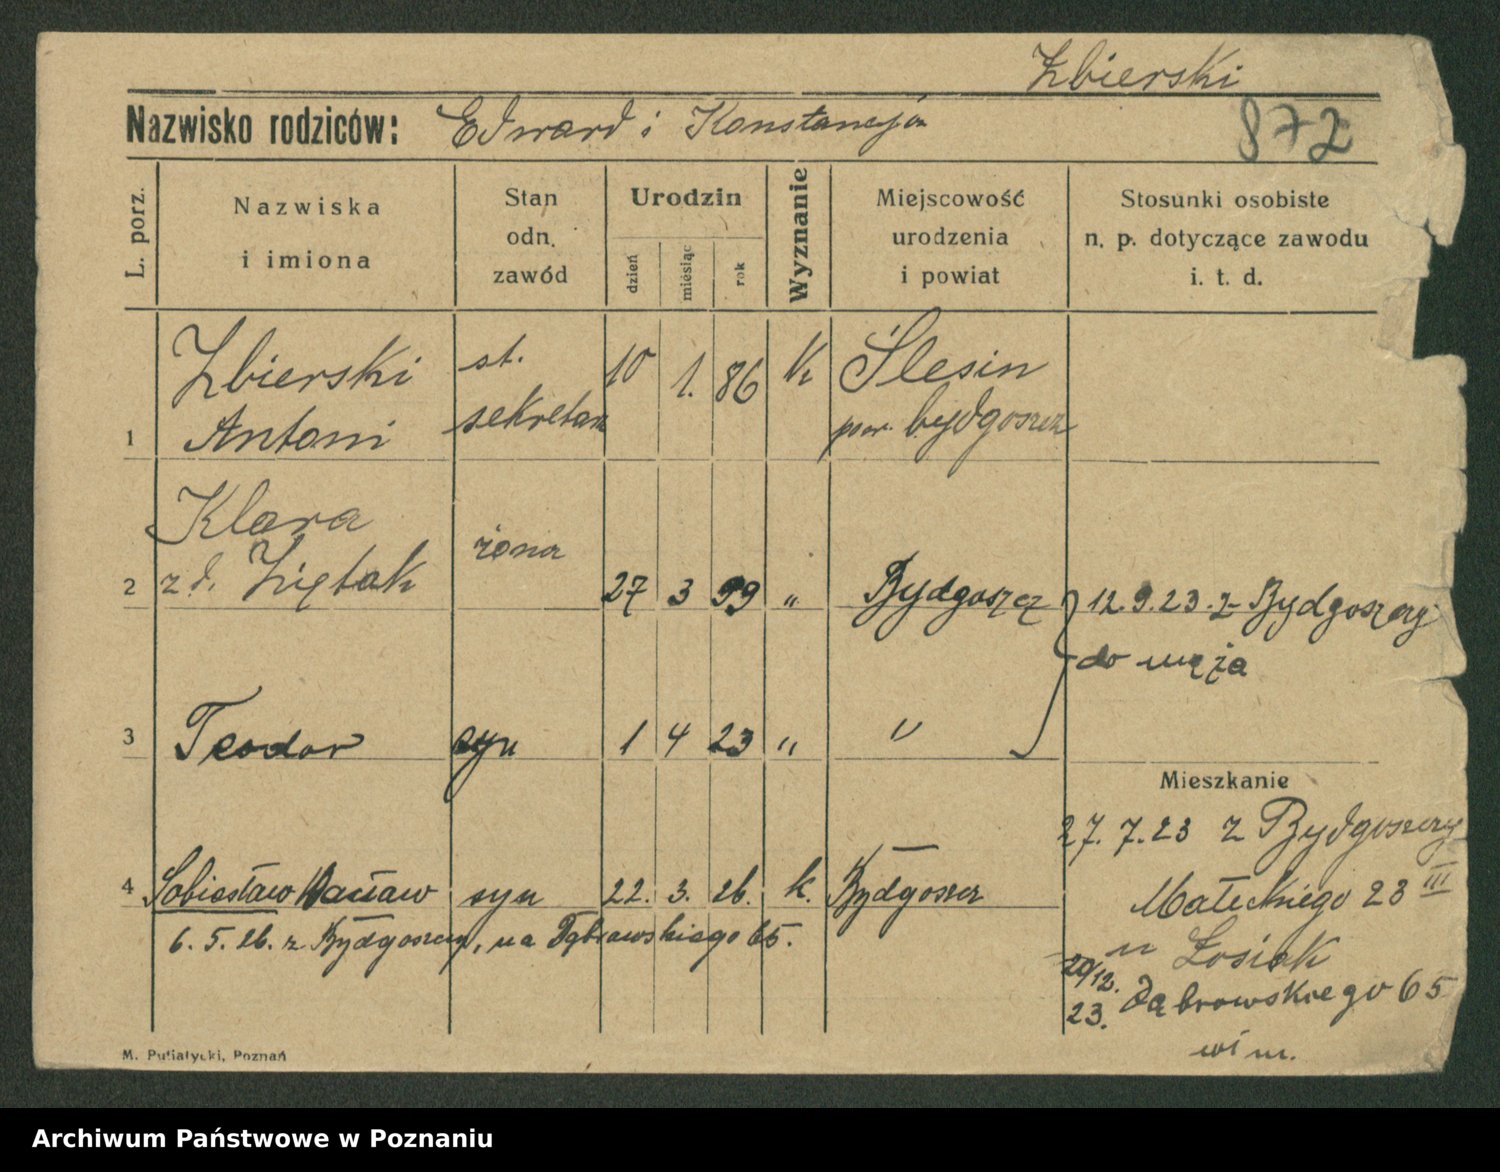 Zbierski
Nazwisko rodziców: Edward i Konstancja
872
L. porz.
Nazwiska
i imiona
Stan
odn.
zawód
Urodzin
dzień
miesiąc
rok
Wyznanie
Miejscowość
urodzenia
i powiat
Stosunki osobiste
n. p. dotyczące zawodu
i. t. d.
Zbierski st. 10 1. 86 K Ślesin
1 Antoni sekretarz pow. bydgoszcz
Klara żona
2 z d. Ziętak 27 3 99 " Bydgoszcz 12.9.23. z Bydgoszczy
do męża
3 Teodor syn 1 4 23 " "
Mieszkanie
27. 7. 23 z Bydgoszczy
4 Sobiesław Wacław syn 22. 3. 26. k. Bydgoszcz
Małeckiego 23 III
6. 5. 26. z Bydgoszczy, na Dąbrowskiego 65.
u Łosiak
20/12. 23. Dąbrowskiego 65
wł m.
M. Putiatycki, Poznań
Archiwum Państwowe w Poznaniu